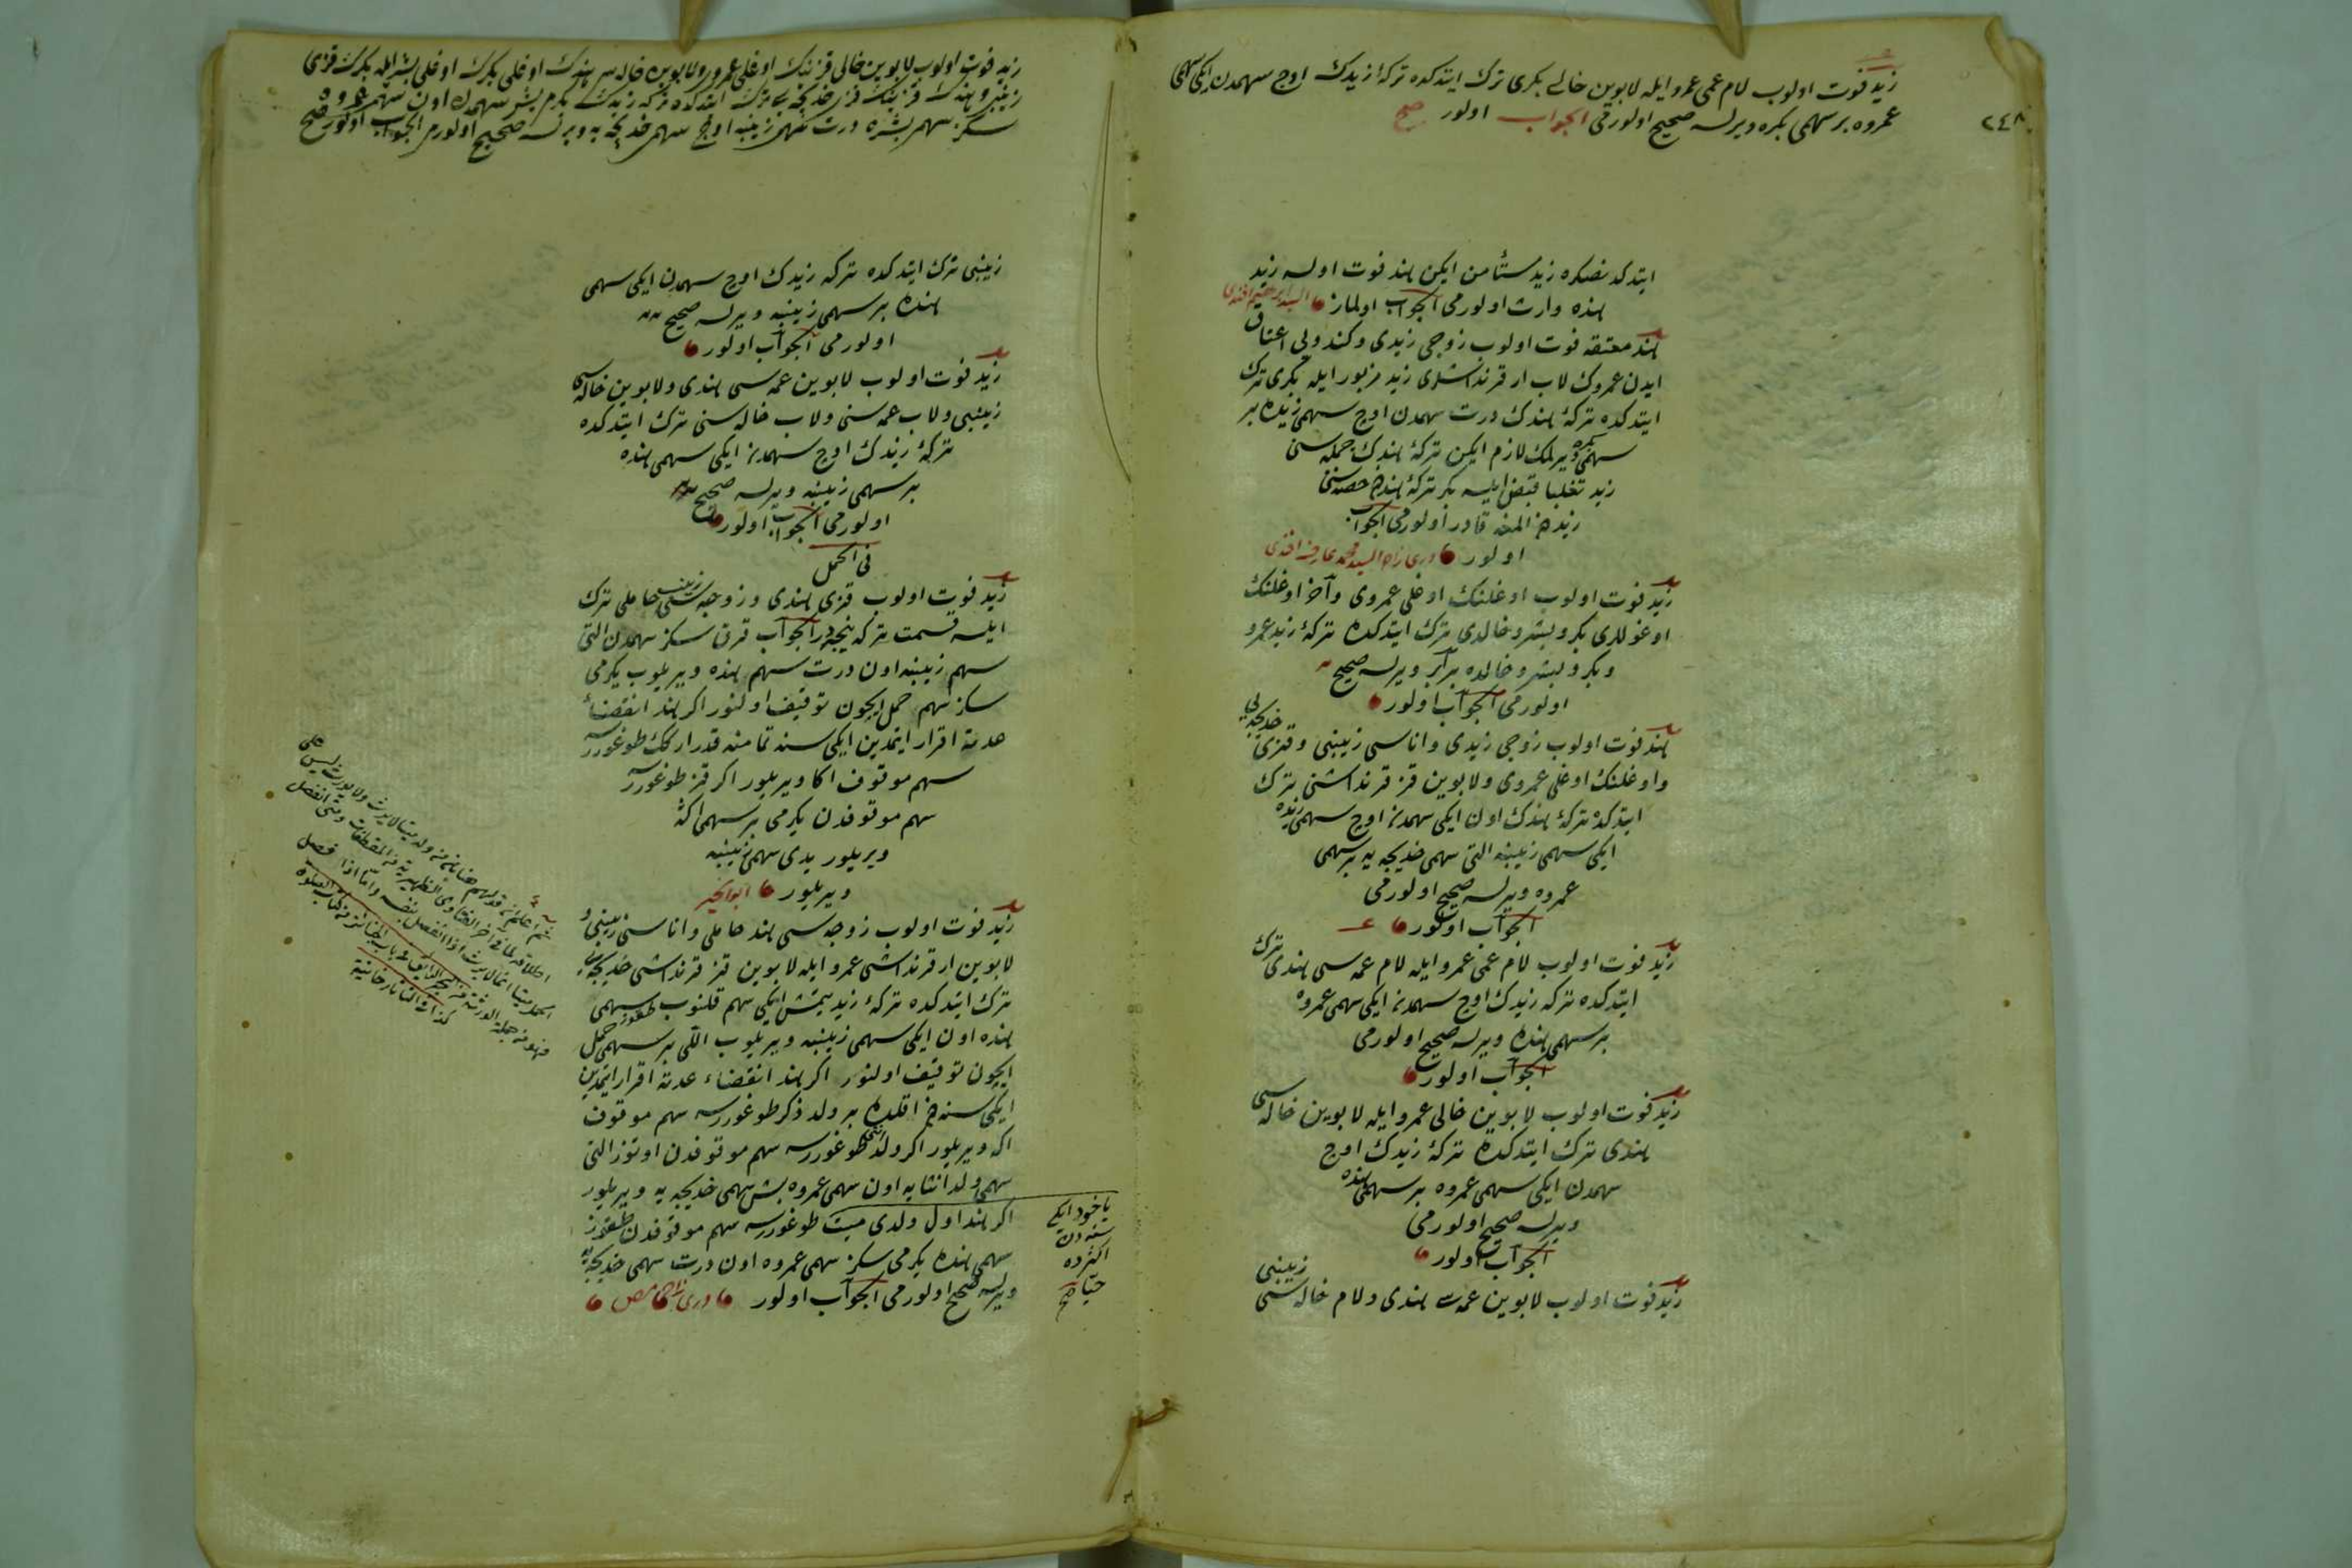 ٢٤٨
زيد فوت اولوب لام عمى عمرو ايله لابوين خالى بكرى ترك ايتدكده تركۀ زيدك اوچ سهمدن ايكى سهمى
عمروه بر سهمى بكره ويرلسه صحيح اولورمى الجواب اولور صح
ايتدكدنصكره زيد مستأمن ايكن هند فوت اولسه زيد
هنده وارث اولورمى الجواب اولماز السيد ابراهيم افندى
هند معتقه فوت اولوب زوجى زيدى وكندويى اعتاق
ايدن عمروك لاب ار قرنداشلرى زيد مزبور ايله بكرى ترك
ايتدكده تركۀ هندك درت سهمدن اوچ سهمى زيده بر
سهمى بكره ويرلمك لازم ايكن تركۀ هندك جمله سنى
زيد تغلبا قبض ايلسه بكر تركۀ هندن حصه سنى
زيددن المغه قادر اولورمى الجواب
اولور درى زاده السيد محمد عارف افندى
زيد فوت اولوب اوغلنك اوغلى عمروى وآخر اوغلنك
اوغللرى بكر وبشر وخالدى ترك ايتدكده تركۀ زيد عمرو
وبكر وبشر وخالده برابر ويرلسه صحيح
اولورمى الجواب اولور
هند فوت اولوب زوجى زيدى واناسى زينبى وقزى خديجه يى
واوغلنك اوغلى عمروى ولابوين قز قرنداشنى ترك
ايتدكده تركۀ هندك اون ايكى سهمدن اوچ سهمى زيده
ايكى سهمى زينبه التى سهمى خديجه يه بر سهمى
عمروه ويرلسه صحيح اولورمى
الجواب اولور
زيد فوت اولوب لام عمى عمرو ايله لام عمه سى هندى ترك
ايتدكده تركه زيدك اوچ سهمدن ايكى سهمى عمروه
بر سهمى هنده ويرلسه صحيح اولورمى
الجواب اولور
زيد فوت اولوب لابوين خالى عمرو ايله لابوين خاله سى
هندى ترك ايتدكده تركۀ زيدك اوچ
سهمدن ايكى سهمى عمروه بر سهمى هنده
ويرلسه صحيح اولورمى
الجواب اولور
زيد فوت اولوب لابوين عمه سى هندى ولام خاله سى زينبى
زيد فوت اولوب لابوين خالى قزينك اوغلى عمرو ولابوين خاله سى هندك اوغلى بكرك اوغلى بشر ايله بكرك قزى
زينب وهندك قزينك قزى خديجه يى ترك ايتدكده تركه زيدك يكرمى بش سهمدن اون سهمى عمروه
سكز سهمى بشره درت سهمى زينبه اوچ سهمى خديجه يه ويرلسه صحيح اولورمى الجواب اولور صح
زينبى ترك ايتدكده تركه زيدك اوچ سهمدن ايكى سهمى
هنده بر سهمى زينبه ويرلسه صحيح
اولورمى الجواب اولور
زيد فوت اولوب لابوين عمه سى هندى ولابوين خاله سى
زينبى ولاب عمه سنى ولاب خاله سنى ترك ايتدكده
تركۀ زيدك اوچ سهمدن ايكى سهمى هنده
بر سهمى زينبه ويرلسه صحيح
اولورمى الجواب اولور
فى الحمل
زيد فوت اولوب قزى هندى وزوجه سى زينب حاملى ترك
ايلسه قسمت تركه نيجه در الجواب قرق سكز سهمدن التى
سهم زينبه اون درت سهم هنده ويريلوب يكرمى
سكز سهم حمل ايچون توقيف اولنور اكر هند انقضاء
عدته اقرار ايتمدين ايكى سنه تمامنه قدر اركك طوغوررسه
سهم موقوف اكا ويريلور اكر قز طوغوررسه
سهم موقوفدن يكرمى بر سهمى اكا
ويريلور يدى سهمى زينبه
ويريلور ابو الخير
زيد فوت اولوب زوجه سى هند حاملى واناسى زينبى و
لابوين ار قرنداشى عمرو ايله لابوين قز قرنداشى خديجه يى
ترك ايتدكده تركۀ زيد يتمش ايكى سهم قلنوب طقوز سهمى
هنده اون ايكى سهمى زينبه ويريلوب اللى بر سهمى حمل
ايچون توقيف اولنور اكر هند انقضاء عدته اقرار ايتمدين
ايكى سنه دن اقلده بر ولد ذكر طوغوررسه سهم موقوف
اكه ويريلور اكر ولد انثى طوغوررسه سهم موقوفدن اوتوز التى
سهمى ولد انثايه اون سهمى عمروه بش سهمى خديجه يه ويريلور
اكر هند اول ولدى ميت طوغوررسه سهم موقوفدن طقوز
سهمى هنده يكرمى سكز سهمى عمروه اون درت سهمى خديجه يه
ويرلسه صحيح اولورمى الجواب اولور
ياخود ايكى
سنه دن
اكثرده
حيا صح
ثم اعلم ان قولهم
كذا فى التاتارخانية